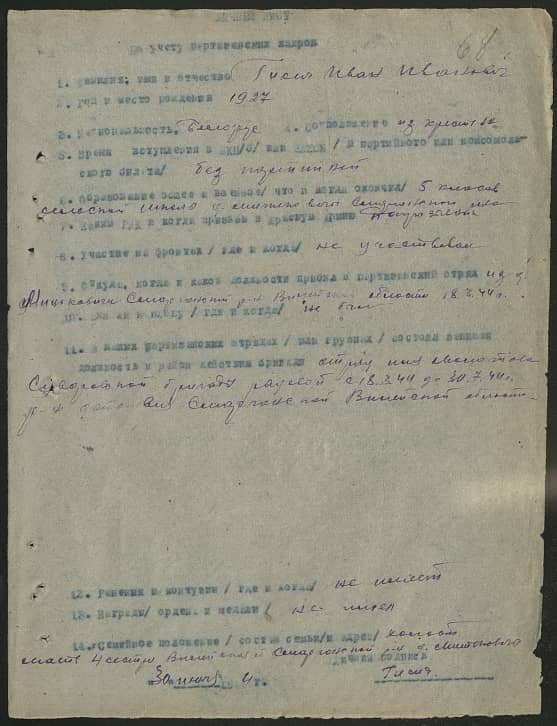 ЛИЧНЫЙ ЛИСТ
по учету партизанских кадров
68
1. Фамилия, имя и отчество Гисля Иван Иванович
2. Год и место рождения 1927
3. Национальность, Белорус 4. Соцположение из крестьян
5. Время вступления в ВКП/б/ или ВЛКСМ / № партийного или комсомоль-
ского билета/ без партийный
6. Образование общее и военное/ что и когда окончил/ 5 классов
сельской школы
7. Каким РВК и когда призван в Красную Армию
8. Участие на фронтах / где и когда/ не участвовал
9. Откуда, когда и какой должности прибыл в партизанский отряд из д.
Сморгонский р-н Вилейской области 18.3.44 г.
10. Был ли в плену / где и когда/ не был
11. В каких партизанских отрядах / или группах / состоял
должность и район действия бригады отряд имя
Суворовской бригады рядовой с 18.3.44 до 30.7.44г.
Сморгонской Вилейской области.
12. Ранения и контузии / где и когда/ не имеет
13. Награды/ ордена и медали / не имел
14. Семейное положение / состав семьи/и адрес/ холост
мать 4 сестры Вилейская Сморгонский р-н д.
Личная подпись
30 июля 4 г. Гисля.